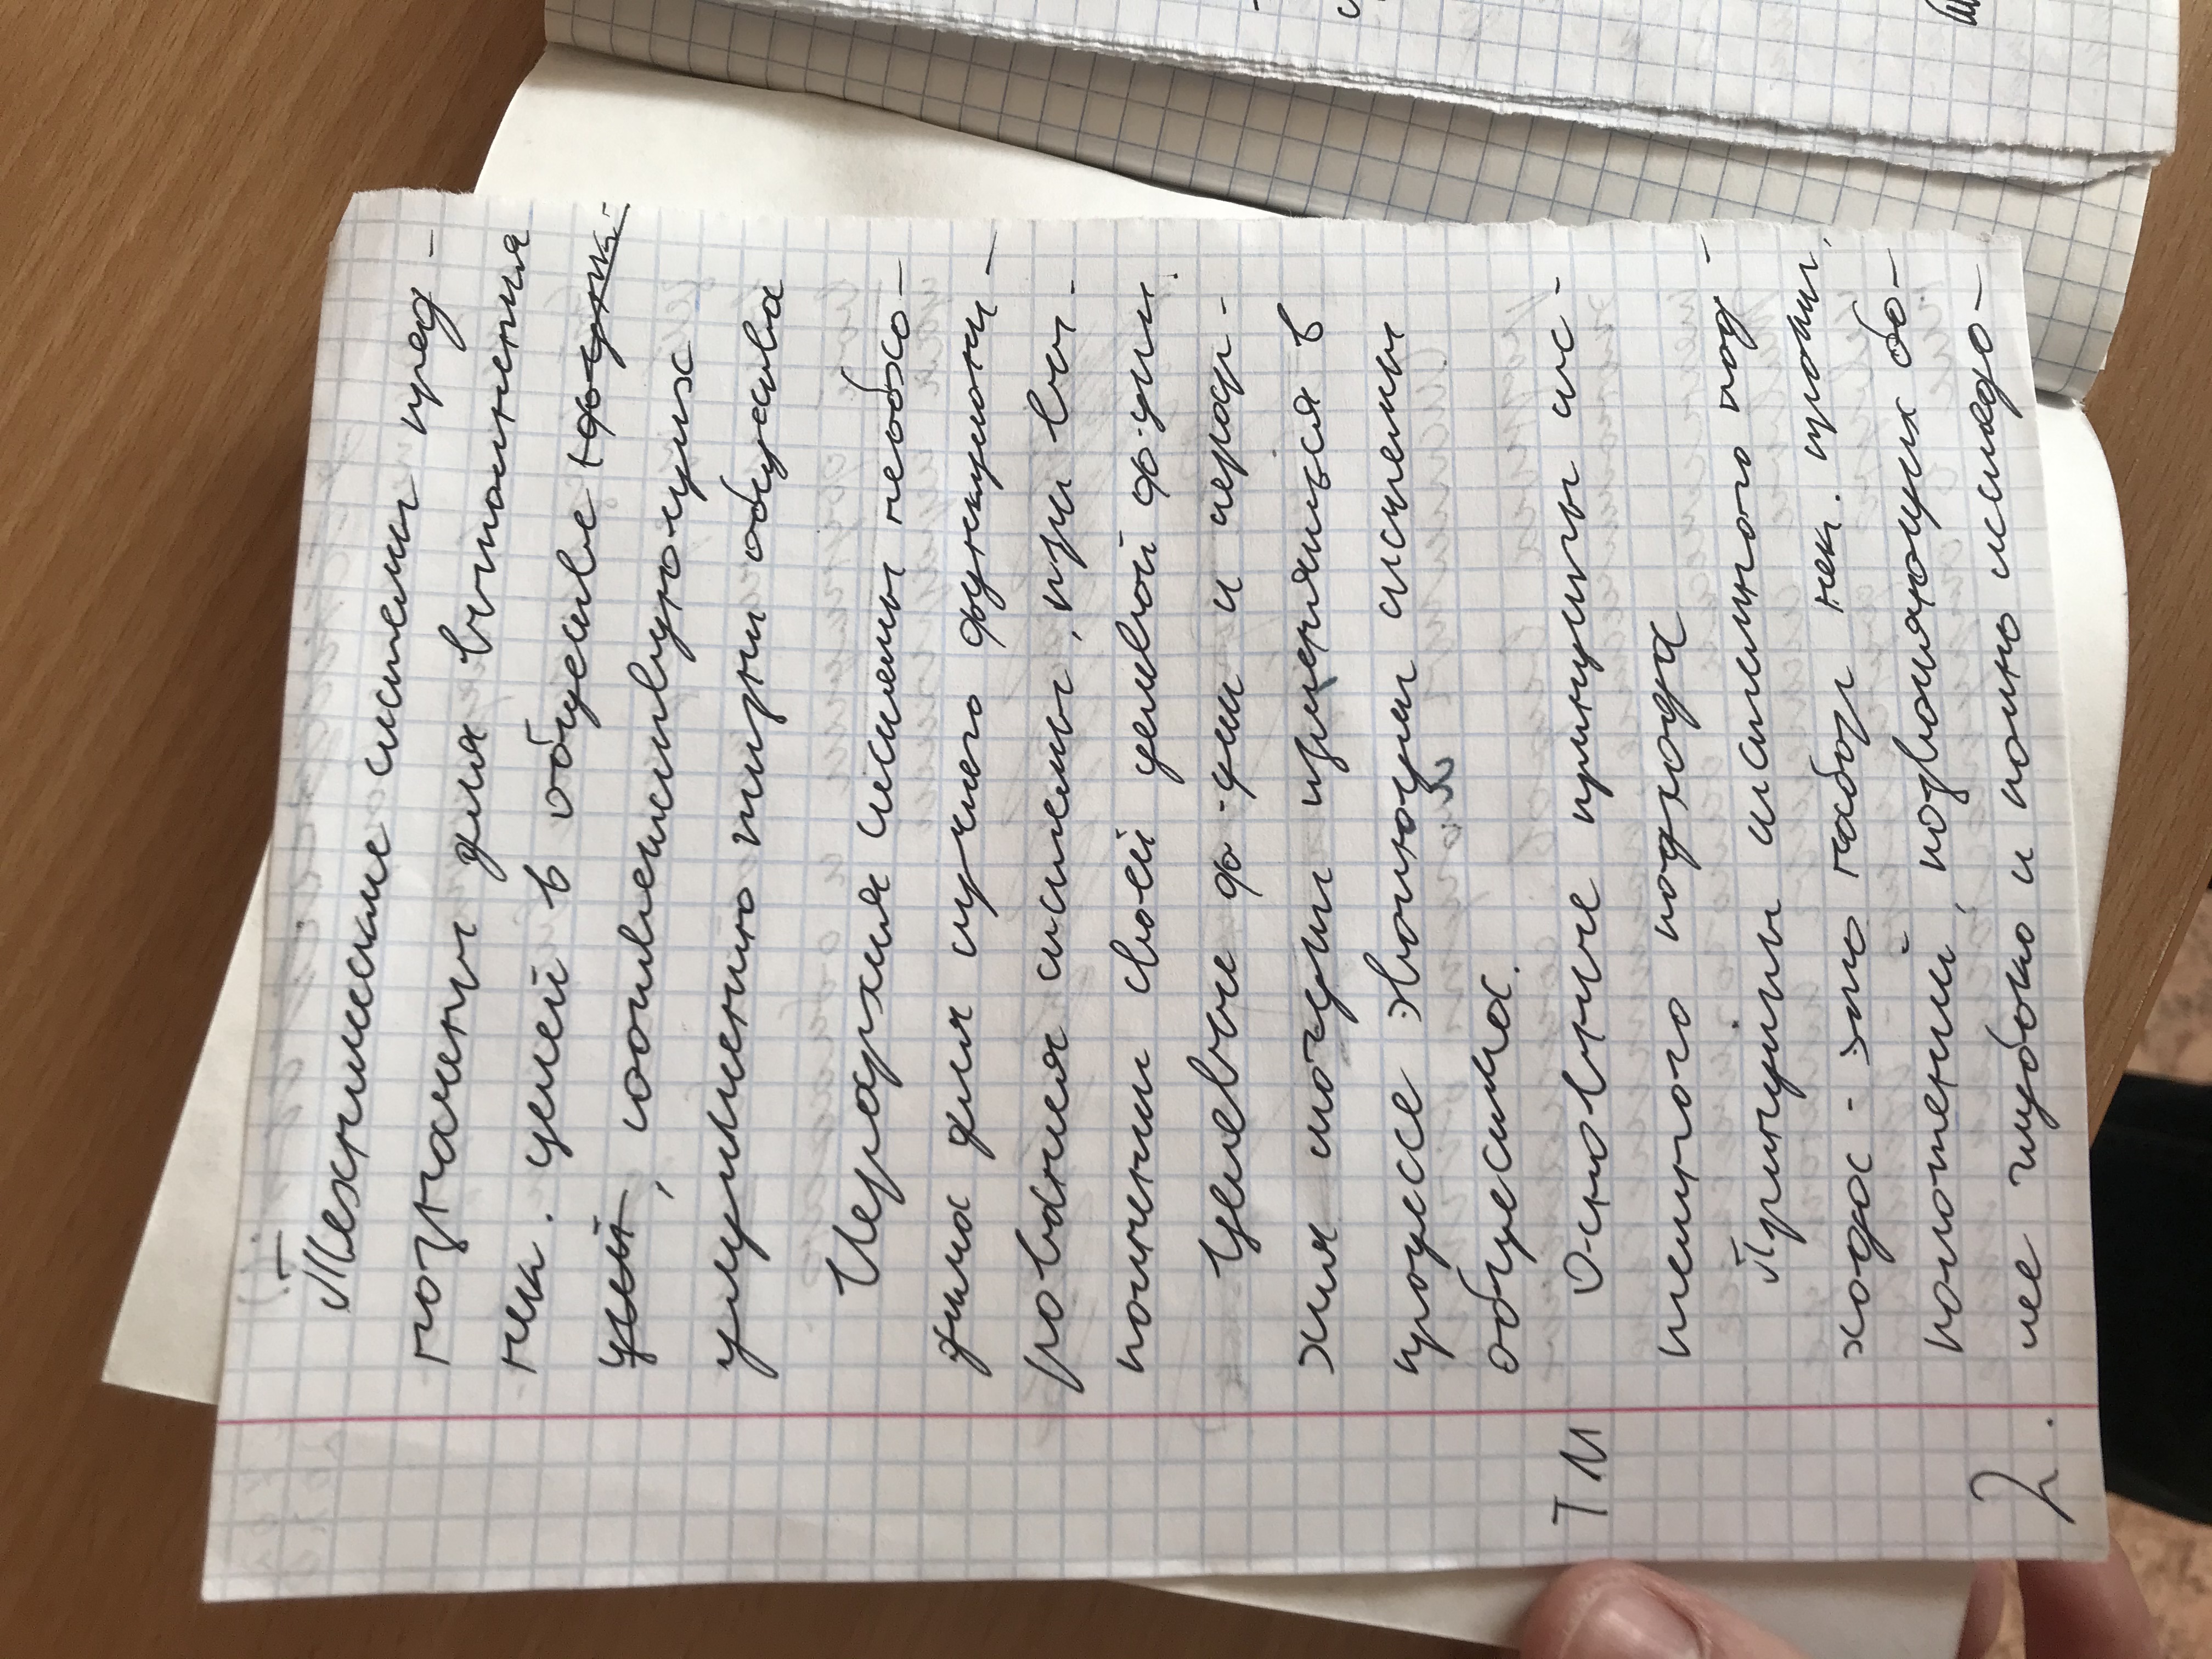 Технические системы пред-
позначены для выполнения
нек. целей в обществе функ-
ций, соответствующих
улучшению жизни общества
Иерархия системы необхо-
дима для лучшего функциони-
рования системы, при вы-
полнении своей целевой ф-ции.
Целевые ф-ции и иерар-
хия могут изменяться в
процессе эволюции системы
общества.
ТМ Основные принципы сис-
темного подхода
Принципы системного под-
хода - это набор нек. правил,
положений, позволяющих бо-
лее глубоко и полно исследо-
2.